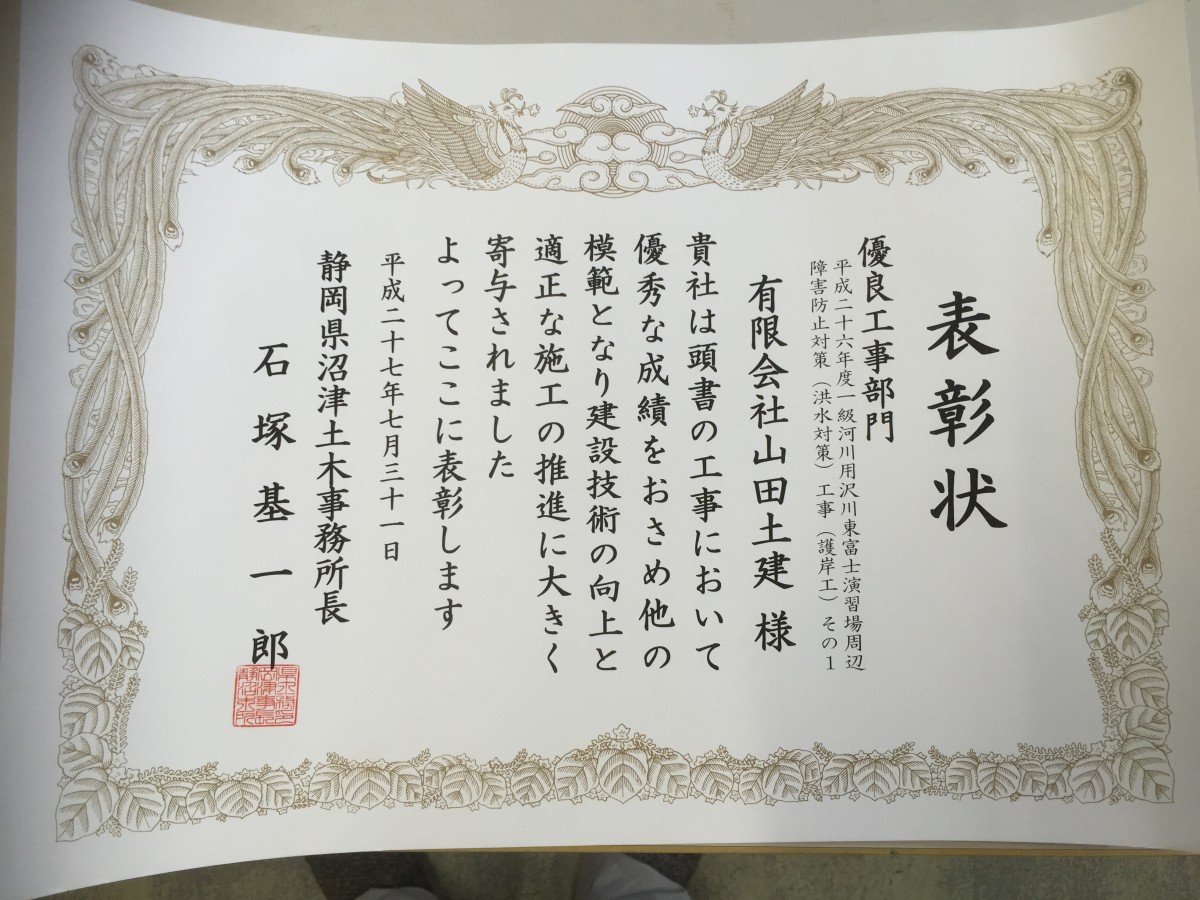 表彰状
優良工事部門
平成二十六年度一級河川用沢川東富士演習場周辺
障害防止対策（洪水対策）工事（護岸工）その1
有限会社山田土建 様
貴社は頭書の工事において
優秀な成績をおさめ他の
模範となり建設技術の向上と
適正な施工の推進に大きく
寄与されました
よってここに表彰します
平成二十七年七月三十一日
静岡県沼津土木事務所長
石塚基一郎